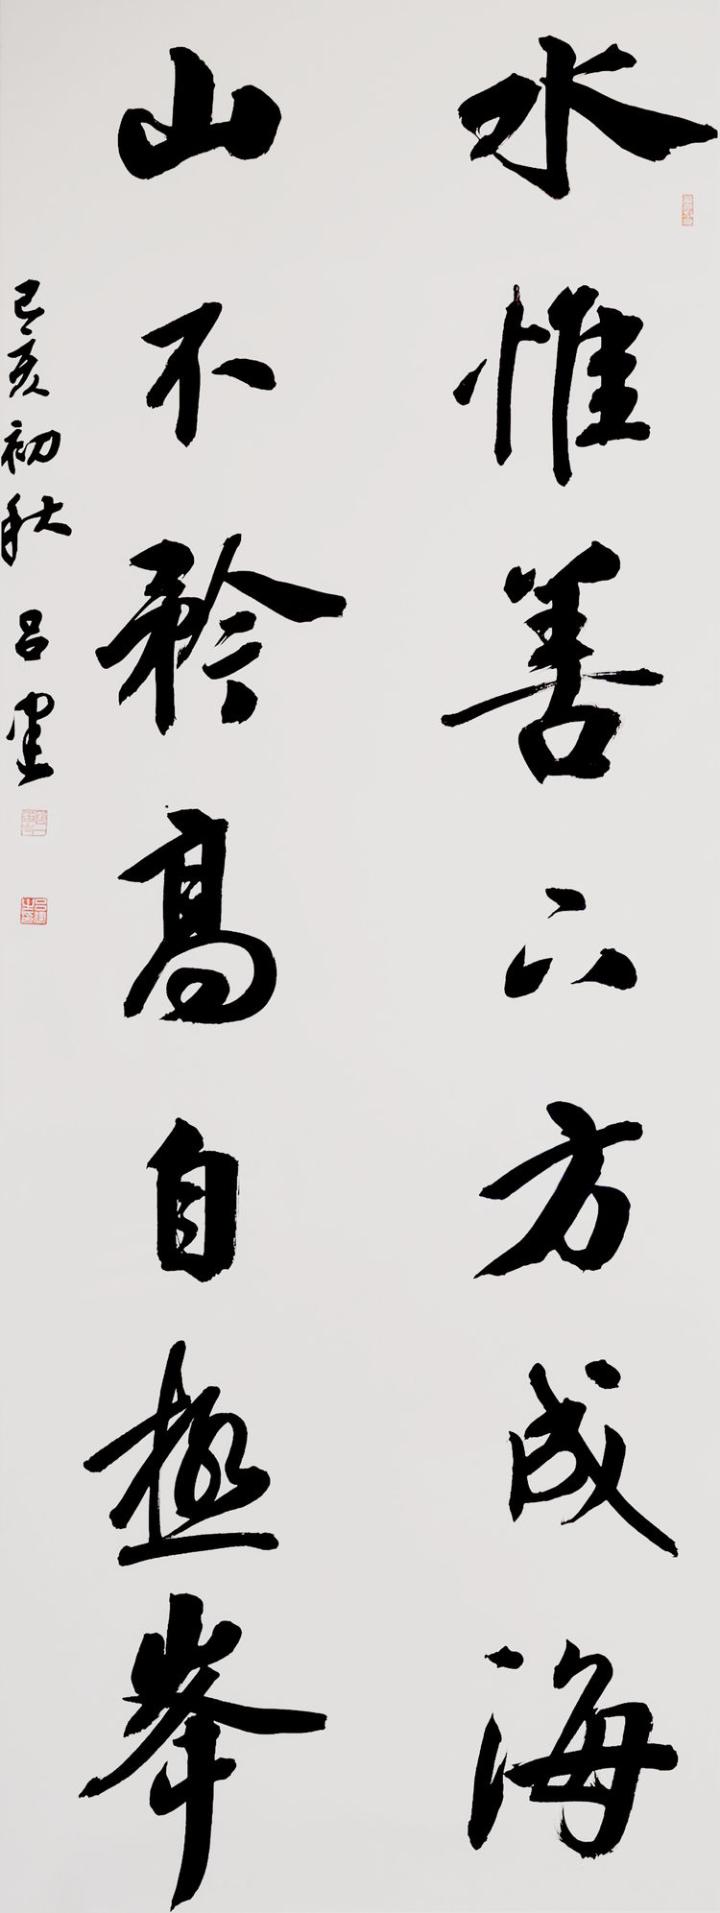 水惟善下方成海
山不矜高自極峯
己亥初秋 吕建